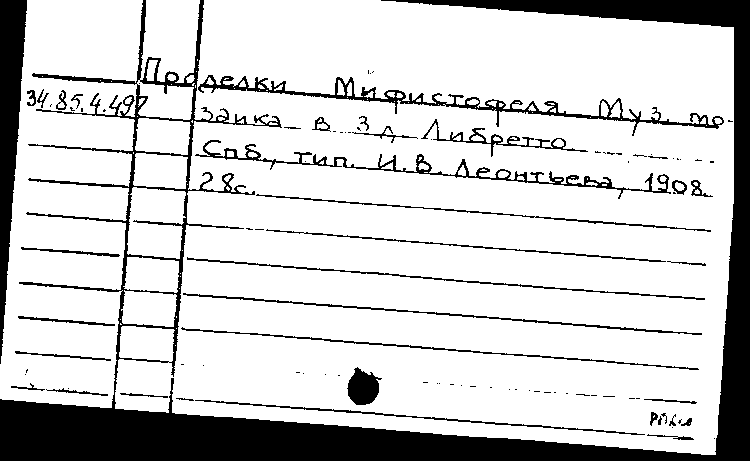 Проделки Мифистофеля. Муз. мо-
34.85.4.497
заика в 3 д. Либретто
Спб., тип. И.В. Леонтьева, 1908.
28с.